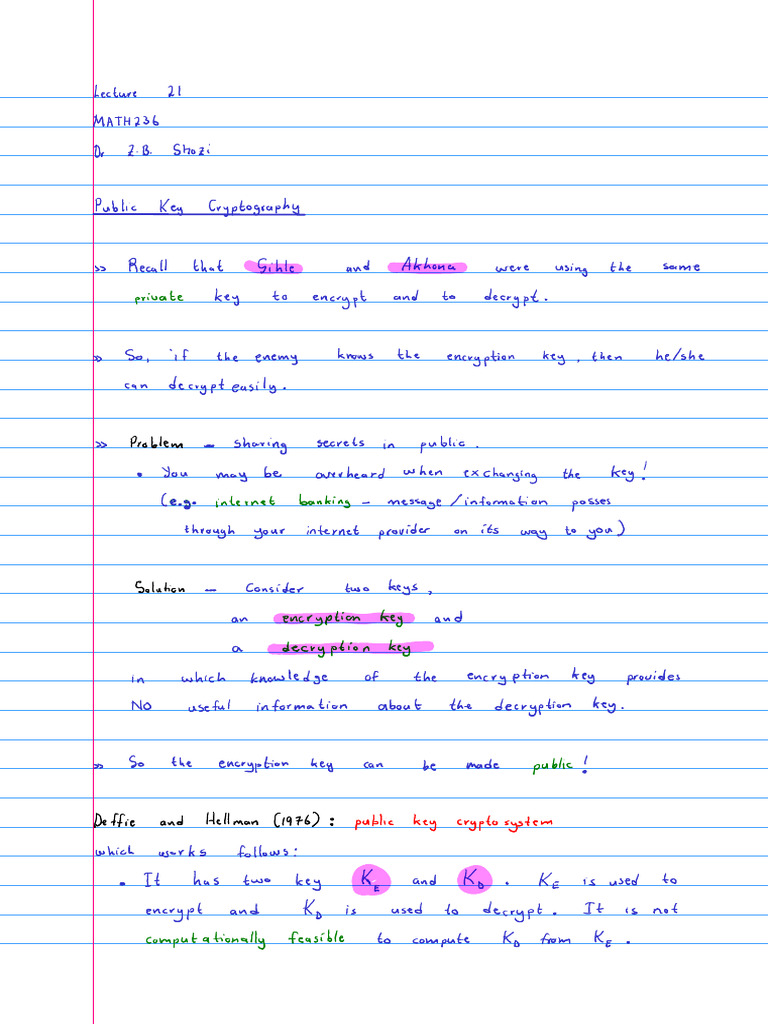 Lecture 21
MATH236
Dr Z.B. Shozi
Public Key Cryptography
>> Recall that Sihle and Akhona were using the same
private key to encrypt and to decrypt.
>> So, if the enemy knows the encryption key, then he/she
can decrypt easily.
>> Problem – sharing secrets in public.
• You may be overheard when exchanging the key!
(e.g. internet banking – message/information passes
through your internet provider on its way to you)
Solution – Consider two keys,
an encryption key and
a decryption key
in which knowledge of the encryption key provides
NO useful information about the decryption key.
>> So the encryption key can be made public!
Deffie and Hellman (1976): public key cryptosystem
which works follows:
• It has two key K_E and K_D. K_E is used to
encrypt and K_D is used to decrypt. It is not
computationally feasible to compute K_D from K_E.